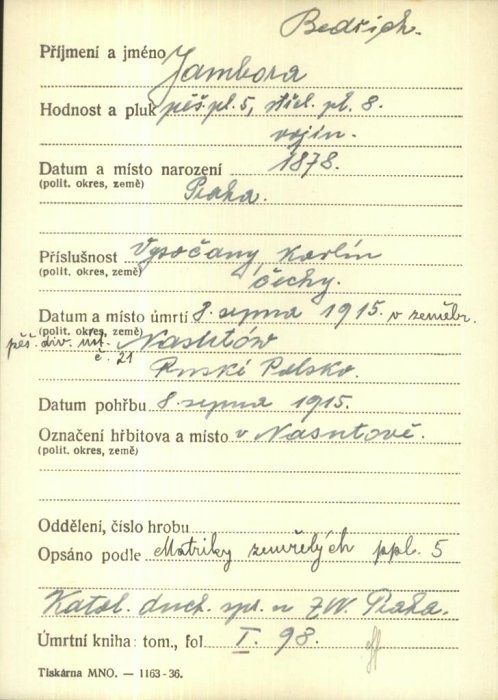 Bedřich.
Příjmení a jméno Jambora
Hodnost a pluk pěš. pl. 5, střel. pl. 8.
vojín.
Datum a místo narození 1878.
(polit. okres, země) Praha.
Příslušnost Vysočany, Karlín
(polit. okres, země) Čechy.
Datum a místo úmrtí 8. srpna 1915. v zeměbr.
(polit. okres, země)
pěš. div. nf. Nasutów
č. 21
Ruské Polsko.
Datum pohřbu 8. srpna 1915.
Označení hřbitova a místo v Nasutově.
(polit. okres, země)
Oddělení, číslo hrobu
Opsáno podle Matriky zemřelých ppl. 5
Katol. duch. spr. u ZVV. Praha.
Úmrtní kniha: tom., fol I. 98.
Tiskárna MNO. — 1163-36.